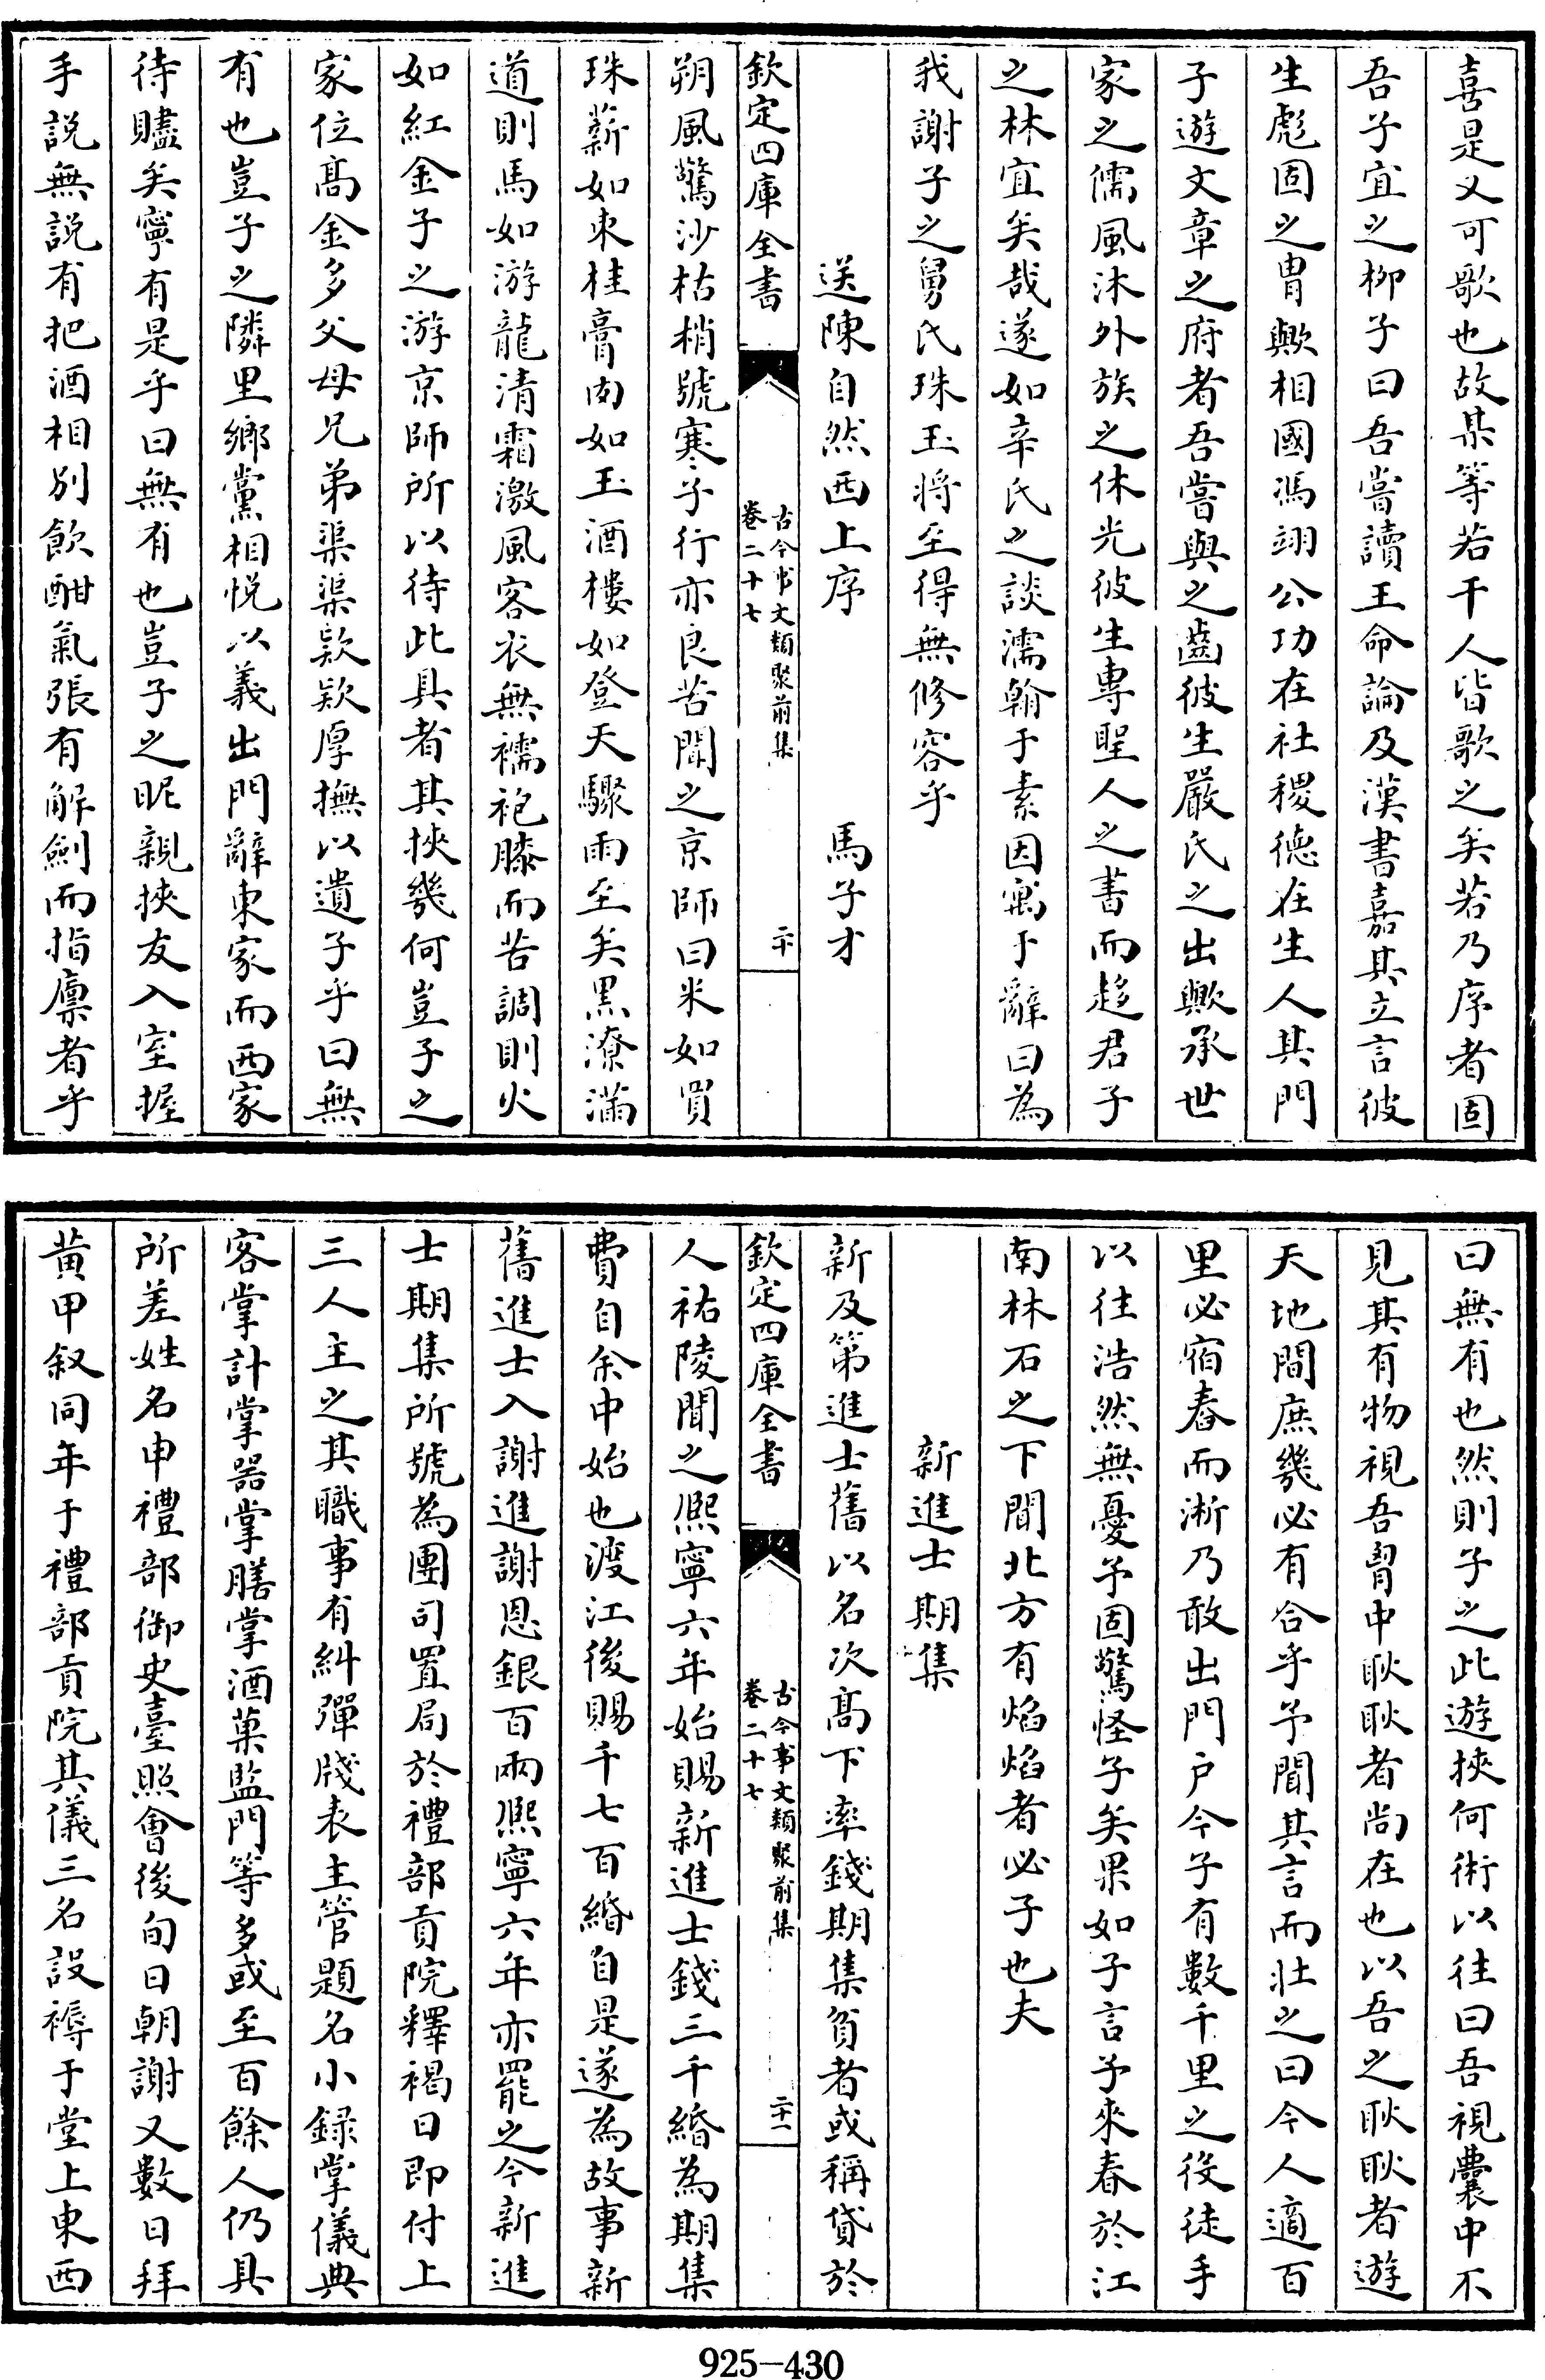 喜是又可歌也故某等若干人皆歌之矣若乃序者固
吾子宜之柳子曰吾嘗讀王命論及漢書嘉其立言彼
生彪固之胄歟相國馮翊公功在社稷德在生人其門
子遊文章之府者吾嘗與之齒彼生嚴氏之出歟承世
家之儒風沐外族之休光彼生專聖人之書而趍君子
之林宜矣哉遂如辛氏之談濡翰于素因寓于辭曰為
我謝子之舅氏珠玉将至得無修容乎
送陳自然西上序 馬子才
欽定四庫全書 古今事文類聚前集 卷二十七 二十
朔風驚沙枯梢號寒子行亦良苦聞之京師曰米如買
珠薪如束桂膏肉如玉酒樓如登天驟雨至矣黑潦滿
道則馬如游龍清霜激風客衣無襦袍膝而苦調則火
如紅金子之游京師所以待此具者其挾幾何豈子之
家位髙金多父母兄弟渠渠欵欵厚撫以遺子乎曰無
有也豈子之隣里鄉黨相悦以義出門辭東家而西家
待贐矣寧有是乎曰無有也豈子之昵親挾友入室握
手説無説有把酒相别飲酣氣張有解劍而指廪者乎
曰無有也然則子之此遊挾何術以往曰吾視囊中不
見其有物視吾胷中耿耿者尚在也以吾之耿耿者遊
天地間庶幾必有合乎予聞其言而壯之曰今人適百
里必宿舂而淅乃敢出門户今子有數千里之役徒手
以往浩然無憂予固驚怪子矣果如子言予來春於江
南林石之下聞北方有焰焰者必子也夫
新進士期集
新及第進士舊以名次髙下率錢期集貧者或稱貸於
欽定四庫全書 古今事文類聚前集 卷二十七 二十一
人祐陵聞之熈寧六年始賜新進士錢三千緡為期集
費自余中始也渡江後賜千七百緡自是遂為故事新
舊進士入謝進謝恩銀百兩熈寧六年亦罷之今新進
士期集所號為團司置局於禮部貢院釋褐日即付上
三人主之其職事有糾彈牋表主管題名小録掌儀典
客掌計掌器掌膳掌酒菓監門等多或至百餘人仍具
所差姓名申禮部御史臺照會後旬日朝謝又數日拜
黄甲叙同年于禮部貢院其儀三名設褥于堂上東西
925—430